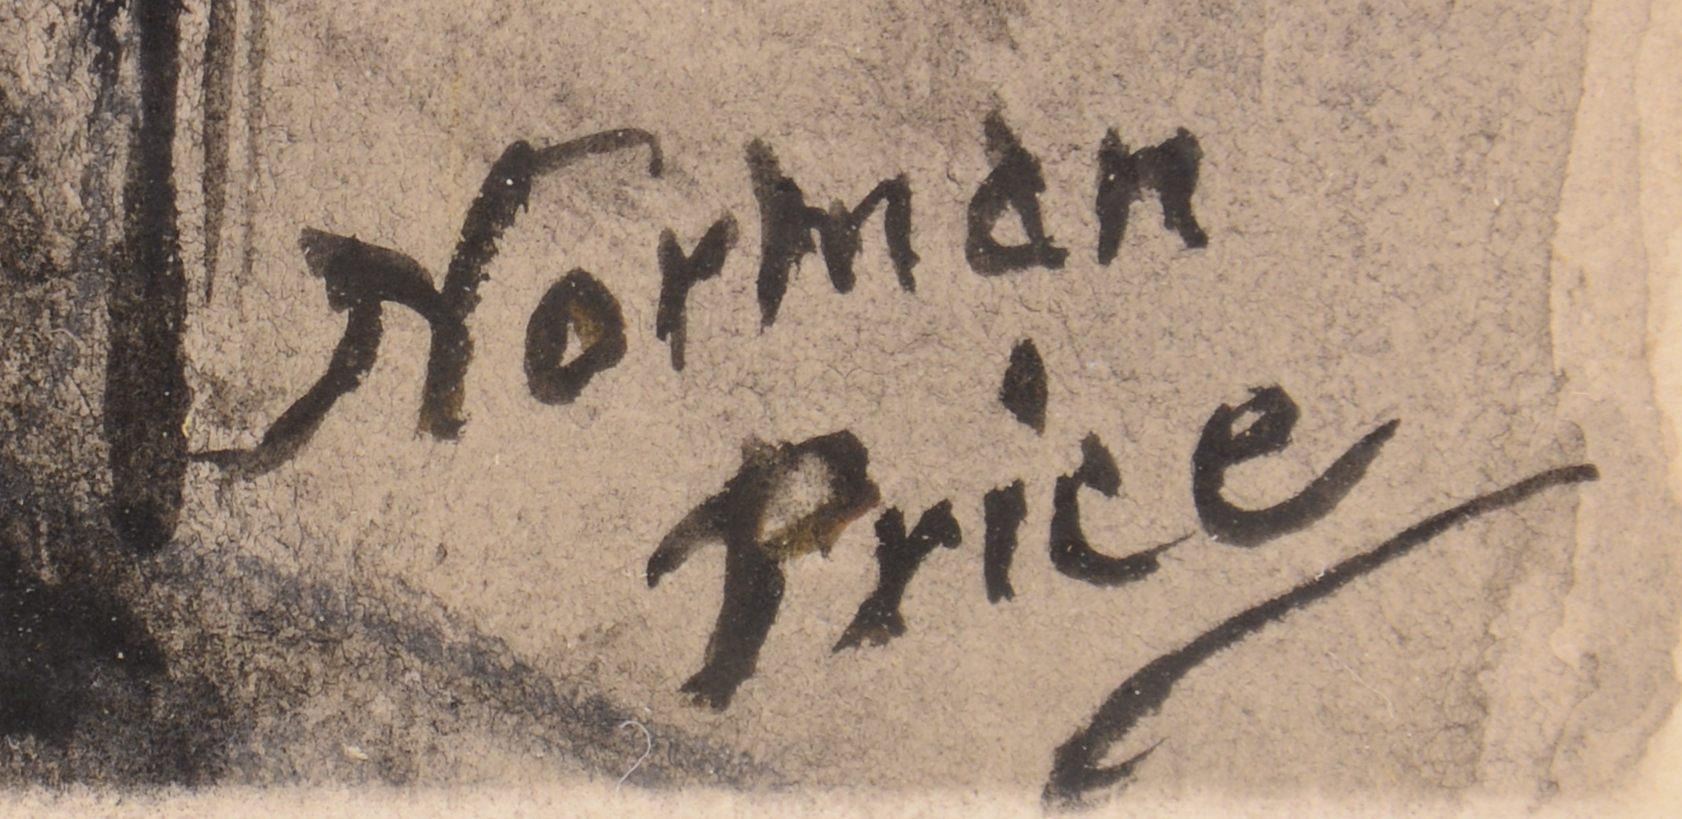 Norman
Price